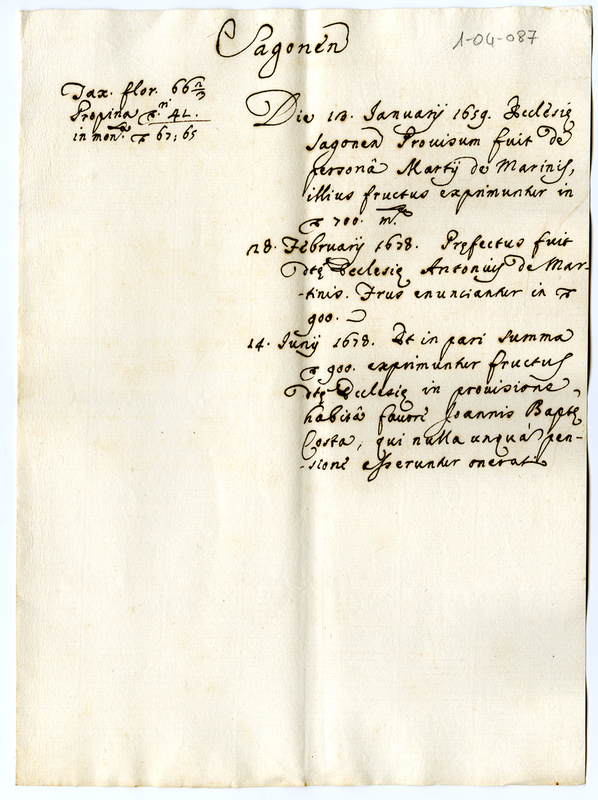 Sagonen
1-04-087
Tax. flor. 66 2/3
Propina ∇.ri 41.
in mon.ta ∇ 67; 65
Die 13. Januarij 1659. Ecclesię
Sagonen Provisum fuit de
personâ Martij de Marinis,
illius fructus exprimuntur in
∇ 700. m.ta
28. Februarij 1678. Pręfectus fuit
dtę Ecclesię Antonius de Mar-
-tinis. Frus enunciantur in ∇
900.
14. Junij 1678. Et in pari summa
∇ 900. exprimuntur fructus
dtę Ecclesię in provisione
habitâ favore Joannis Baptę
Costa, qui nulla unquá pen-
-sione asseruntur onerati